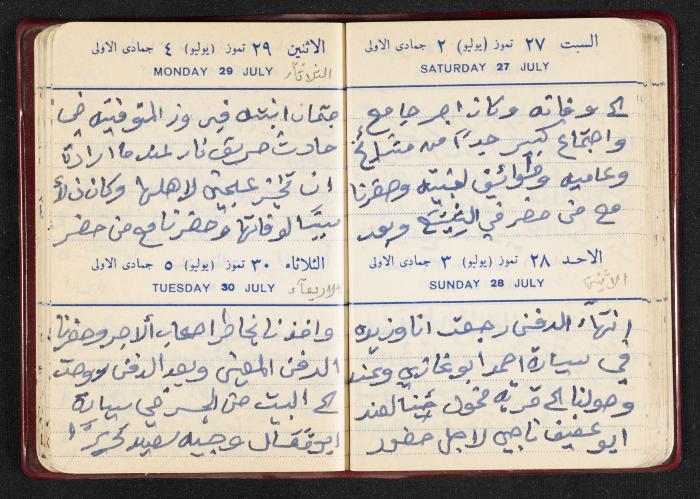 السبت ٢٧ تموز (يوليو) ٢ جمادى الاولى
SATURDAY 27 JULY
الى وفاته وكان اجر جامع
واجتماع كبير جداً من مشايخ
وعاميه وطوائف لفيته وحضرنا
مع من حضر في التشييع وبعد
الاحد ٢٨ تموز (يوليو) ٣ جمادى الاولى
الاثنين
SUNDAY 28 JULY
انتهاء الدفن رجعت انا وزيد
في سيارة احمد ابو غازي وعند
وصولنا الى قرية نزلنا لعند
ابو عفيف ناجي لاجل حضور
الاثنين ٢٩ تموز (يوليو) ٤ جمادى الاولى
الثلاثاء
MONDAY 29 JULY
جثمان ابنته فيروز المتوفيه في
حادث حريق نار لعند ما ارادة
ان تخبز عجين لاهلها وكان ذلك
سبباً لوفاتها وحضرنا مع من حضر
الثلاثاء ٣٠ تموز (يوليو) ٥ جمادى الاولى
الاربعاء
TUESDAY 30 JULY
واخذنا بخاطر اصحاب الاجر وحضرنا
الدفن وبعد الدفن روحت
الى البيت من في سيارة
ابو وجيه سعيد